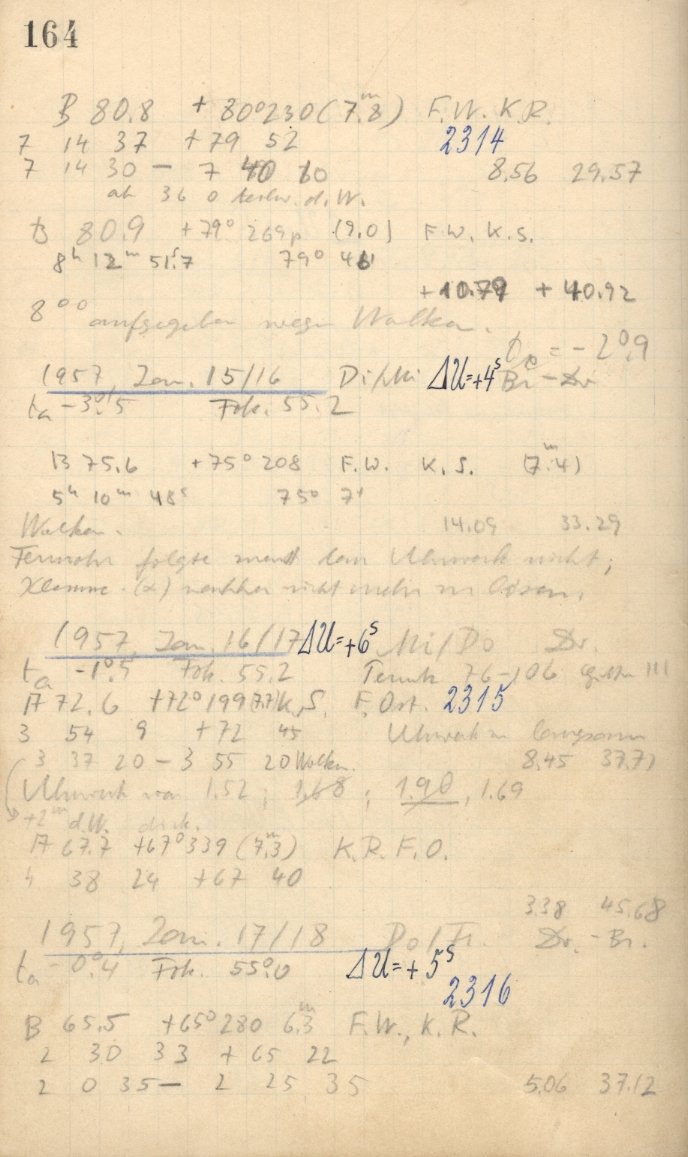 164
B 80.8 +80°230 (7.ᵐ8) F.W. K.R.
7 14 37 +79 52 2314
7 14 30 — 7 40 10 8,56 29.57
ab 36 0 d.W.
B 80.9 +79° 269p (9,0) F.W. K.S.
8ʰ 12ᵐ 51ˢ.7 79°
+10.79 + 40.92
8⁰⁰ aufgegeben wegen Wolken.
= -2°.9
1957, Jan. 15/16 Di/Mi ΔU=+4ˢ Br - Dr
ta -3°.5 Fok. 55.2
B 75.6 +75° 208 F.W. K.S. (7.ᵐ4)
5ʰ 10ᵐ 48ˢ 75° 7'
Wolken. 14.09 33.29
Fernrohr folgte dem Uhrwerk nicht;
Klemme (α) nachher nicht mehr zu lösen.
1957, Jan 16/17 ΔU=+6ˢ Mi/Do Dr.
ta -1°.5 Fok. 55.2 76-106
A 72.6 +72° 199 K.S. F. Ost. 2315
3 54 9 +72 45 Uhrwerk zu langsam
3 37 20 — 3 55 20 Wolken. 8.45 37.71
Uhrwerk war 1.52 ; 1,68 ; 1.90, 1.69
+2ᵐ d.W.
A 67.7 +67°339 (7.ᵐ3) K.R. F.O.
4 38 24 +67 40
3.38 45.68
1957, Jan. 17/18 Do/Fr. Dr. - Br.
ta -0°.4 Fok. 55°.0 ΔU=+5ˢ
2316
B 65.5 +65°280 6.ᵐ3 F.W., K.R.
2 30 33 +65 22
2 0 35 — 2 25 35 5,06 37.12